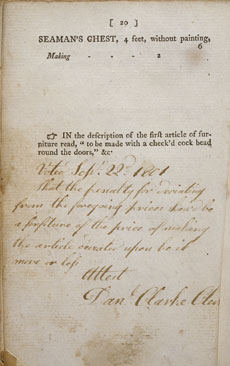 [ 20 ]
SEAMAN'S CHEST, 4 feet, without painting,
6
Making - - - 2
☞ IN the deſcription of the firſt article of fur-
niture read, "to be made with a check'd cock bead
round the doors," &c.
Voted Sep. 22d. 1801
That the penalty for deviating
from the foregoing prices shall be
a forfeiture of the price of making
the article deviated upon be it
more or less
Attest
Danl Clarke Clerk